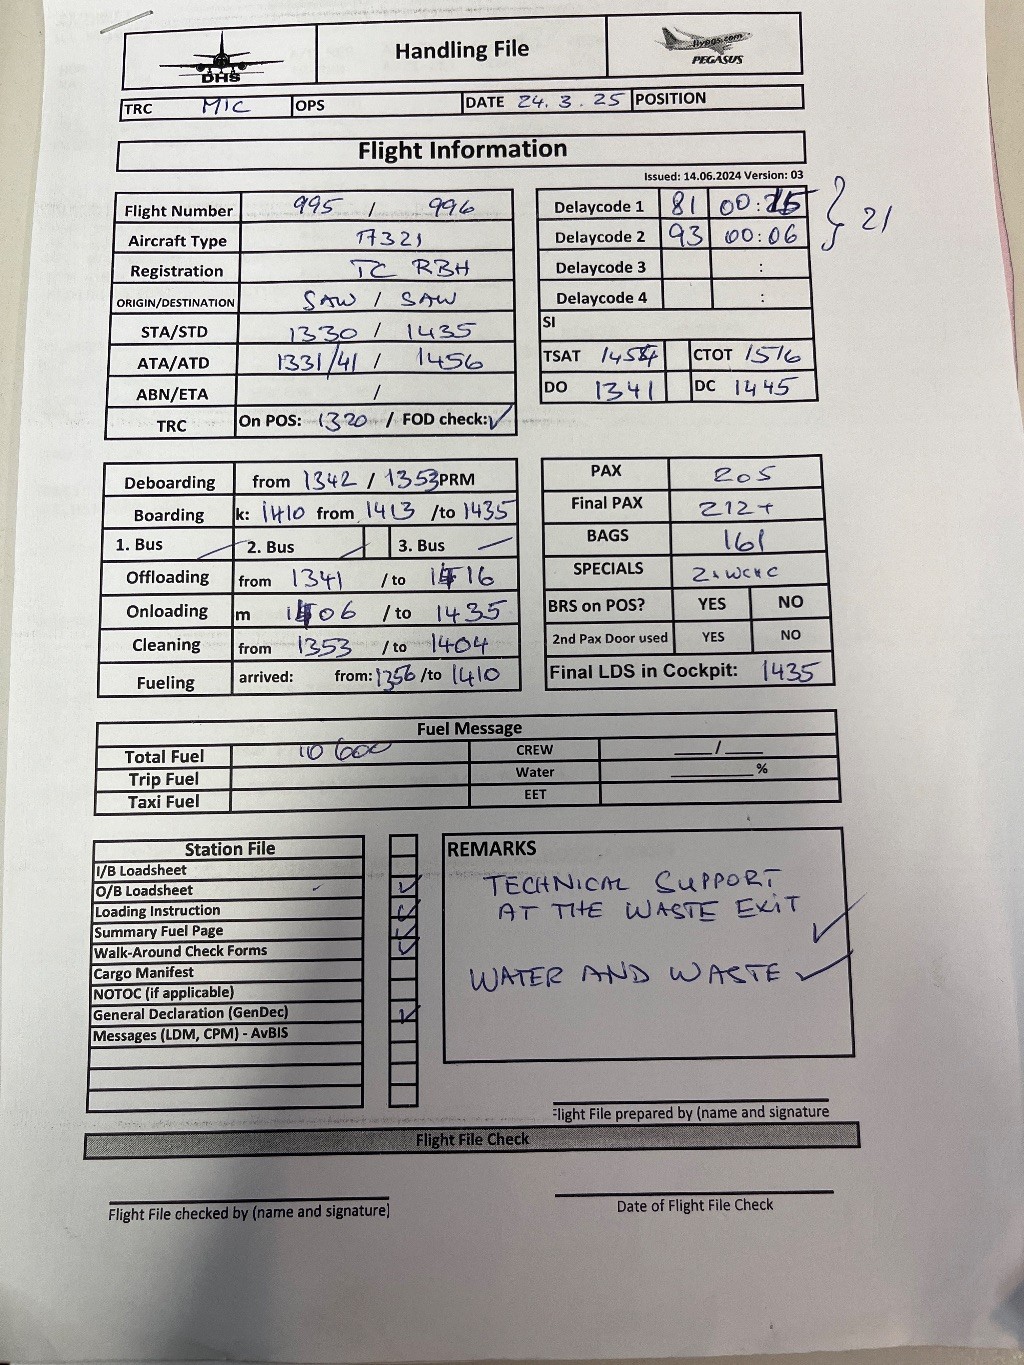 DHS
Handling File
flypgs.com
PEGASUS
TRC MIC OPS DATE 24.3.25 POSITION
Flight Information
Issued: 14.06.2024 Version: 03
Flight Number 995 / 996
Aircraft Type A321
Registration TC RBH
ORIGIN/DESTINATION SAW / SAW
STA/STD 1330 / 1435
ATA/ATD 1331/41 / 1456
ABN/ETA /
TRC On POS: 1320 / FOD check: ✓
Delaycode 1 81 00:15
Delaycode 2 93 00:06
} 21
Delaycode 3 :
Delaycode 4 :
SI
TSAT 1454 CTOT 1516
DO 1341 DC 1445
Deboarding from 1342 / 1353 PRM
Boarding k: 1410 from 1413 /to 1435
1. Bus 2. Bus 3. Bus
Offloading from 1341 /to 1416
Onloading m 1406 /to 1435
Cleaning from 1353 /to 1404
Fueling arrived: from: 1356 /to 1410
PAX 205
Final PAX 212+
BAGS 161
SPECIALS 2xWCHC
BRS on POS? YES NO
2nd Pax Door used YES NO
Final LDS in Cockpit: 1435
Fuel Message
Total Fuel 10 600 CREW ___/___
Trip Fuel Water ______%
Taxi Fuel EET
Station File
I/B Loadsheet
O/B Loadsheet ✓
Loading Instruction ✓
Summary Fuel Page ✓
Walk-Around Check Forms ✓
Cargo Manifest
NOTOC (if applicable)
General Declaration (GenDec) ✓
Messages (LDM, CPM) - AvBIS
REMARKS
TECHNICAL SUPPORT
AT THE WASTE EXIT ✓
WATER AND WASTE ✓
Flight File prepared by (name and signature
Flight File Check
Flight File checked by (name and signature)
Date of Flight File Check